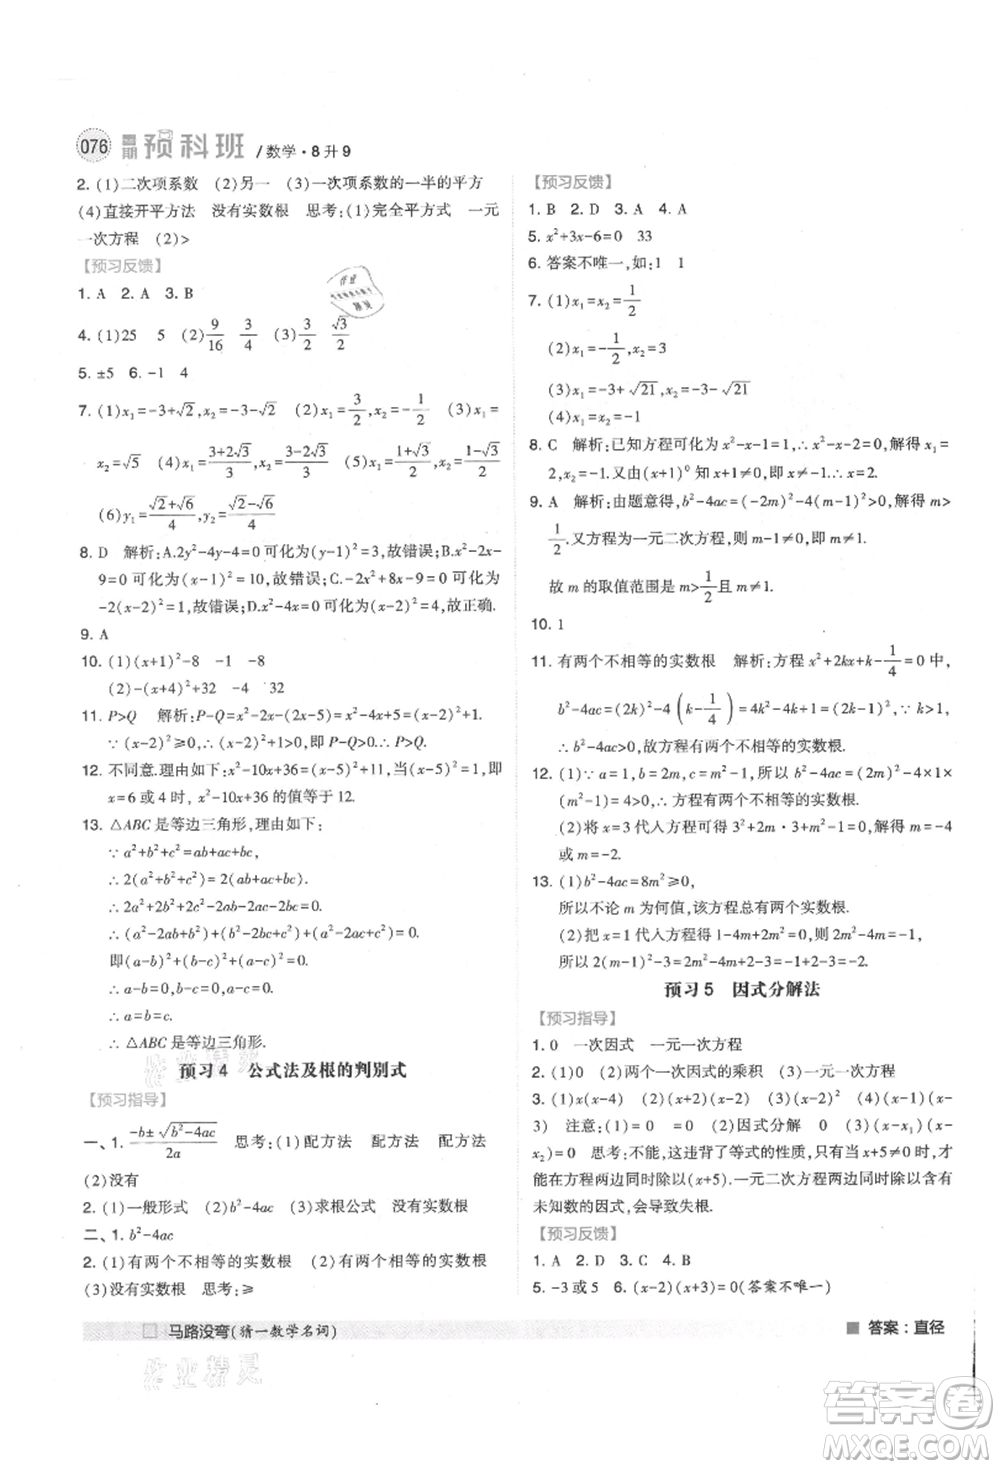 076 暑期 预科班 / 数学·8升9
2. (1)二次项系数 (2)另一 (3)一次项系数的一半的平方
(4)直接开平方法 没有实数根 思考:(1)完全平方式 一元
一次方程 (2)>
【预习反馈】
1. A 2. A 3. B
4. (1)25 5 (2)9/16 3/4 (3)3/2 √3/2
5. ±5 6. -1 4
7. (1)x₁=-3+√2,x₂=-3-√2 (2)x₁=3/2,x₂=-1/2 (3)x₁=
x₂=√5 (4)x₁=(3+2√3)/3,x₂=(3-2√3)/3 (5)x₁=(1+√3)/2,x₂=(1-√3)/2
(6)y₁=(√2+√6)/4,y₂=(√2-√6)/4
8. D 解析:A.2y²-4y-4=0 可化为(y-1)²=3,故错误;B.x²-2x-
9=0 可化为(x-1)²=10,故错误;C.-2x²+8x-9=0 可化为
-2(x-2)²=1,故错误;D.x²-4x=0 可化为(x-2)²=4,故正确.
9. A
10. (1)(x+1)²-8 -1 -8
(2)-(x+4)²+32 -4 32
11. P>Q 解析:P-Q=x²-2x-(2x-5)=x²-4x+5=(x-2)²+1.
∵(x-2)²≥0,∴(x-2)²+1>0,即P-Q>0,故P>Q.
12. 不同意.可设x²-10x+36=12.解得x₁=4,x₂=6,即
x=6 或 4 时, x²-10x+36 的值等于 12.
13. △ABC 是等边三角形,理由如下:
∵a²+b²+c²=ab+ac+bc,
∴2(a²+b²+c²)=2(ab+ac+bc).
∴2a²+2b²+2c²-2ab-2ac-2bc=0.
∴(a²-2ab+b²)+(b²-2bc+c²)+(a²-2ac+c²)=0.
即(a-b)²+(b-c)²+(a-c)²=0.
∴a-b=0,b-c=0,a-c=0.
∴a=b=c.
∴△ABC 是等边三角形.
预习4 公式法及根的判别式
【预习指导】
一、1. (-b±√(b²-4ac))/2a 思考:(1)配方法 配方法 配方法
(2)没有
2. (1)一般形式 (2)b²-4ac (3)求根公式 没有实数根
二、1. b²-4ac
2. (1)有两个不相等的实数根 (2)有两个相等的实数根
(3)没有实数根 思考:≥
【预习反馈】
1. B 2. D 3. A 4. A
5. x²+3x-6=0 33
6. 答案不唯一,如:1 1
7. (1)x₁=x₂=1/2
(2)x₁=-1/2,x₂=3
(3)x₁=-3+√21,x₂=-3-√21
(4)x₁=x₂=-1
8. C 解析:已知方程可化为 x²-x-1=1,∴x²-x-2=0.解得 x₁=
2,x₂=-1.又由(x+1)⁰ 知 x+1≠0,∴x≠-1.故x=2.
9. A 解析:由题意得,b²-4ac=(-2m)²-4(m-1)²>0,解得 m>
1/2.又方程为一元二次方程,则 m-1≠0,即 m≠1.
故 m 的取值范围是 m>1/2且 m≠1.
10. 1
11. 有两个不相等的实数根 解析:方程 x²+2kx+k-1/4=0 中,
b²-4ac=(2k)²-4(k-1/4)=4k²-4k+1=(2k-1)²,∵k>1,
∴b²-4ac>0,故方程有两个不相等的实数根.
12. (1)∵a=1,b=2m,c=m²-1,所以 b²-4ac=(2m)²-4×1×
(m²-1)=4>0,∴方程有两个不相等的实数根.
(2)将 x=3 代入方程可得 3²+2m·3+m²-1=0,解得 m=-4
或 m=-2.
13. (1)b²-4ac=8m²≥0,
所以不论 m 为何值,该方程总有两个实数根.
(2)把 x=1 代入方程得 1-4m+2m²=0,所以 2m²-4m=-1,
所以 2(m-1)²-3=2m²-4m+2-3=-1+2-3=-2.
预习5 因式分解法
【预习指导】
1. 0 一次因式 一元一次方程
2. (1)0 (2)两个一次因式的乘积 (3)一元一次方程
3. (1)x(x-4) (2)(x+2)(x-2) (3)(x-2)² (4)(x-1)(x-
3) 注意:(1)=0 (2)=0 (3)因式分解 0 (x-x₁)(x-
x₂)=0 思考:不能,这违背了等式的性质,只有当x+5≠0时,才
能在方程两边同时除以(x+5).一元二次方程两边同时除以含有
未知数的因式,会导致失根.
【预习反馈】
1. A 2. D 3. C 4. B
5. -3或5 6. (x-2)(x+3)=0(答案不唯一)
马路没弯(猜一数学名词)
答案:直径
作业精灵
答案圈
MXQE.COM